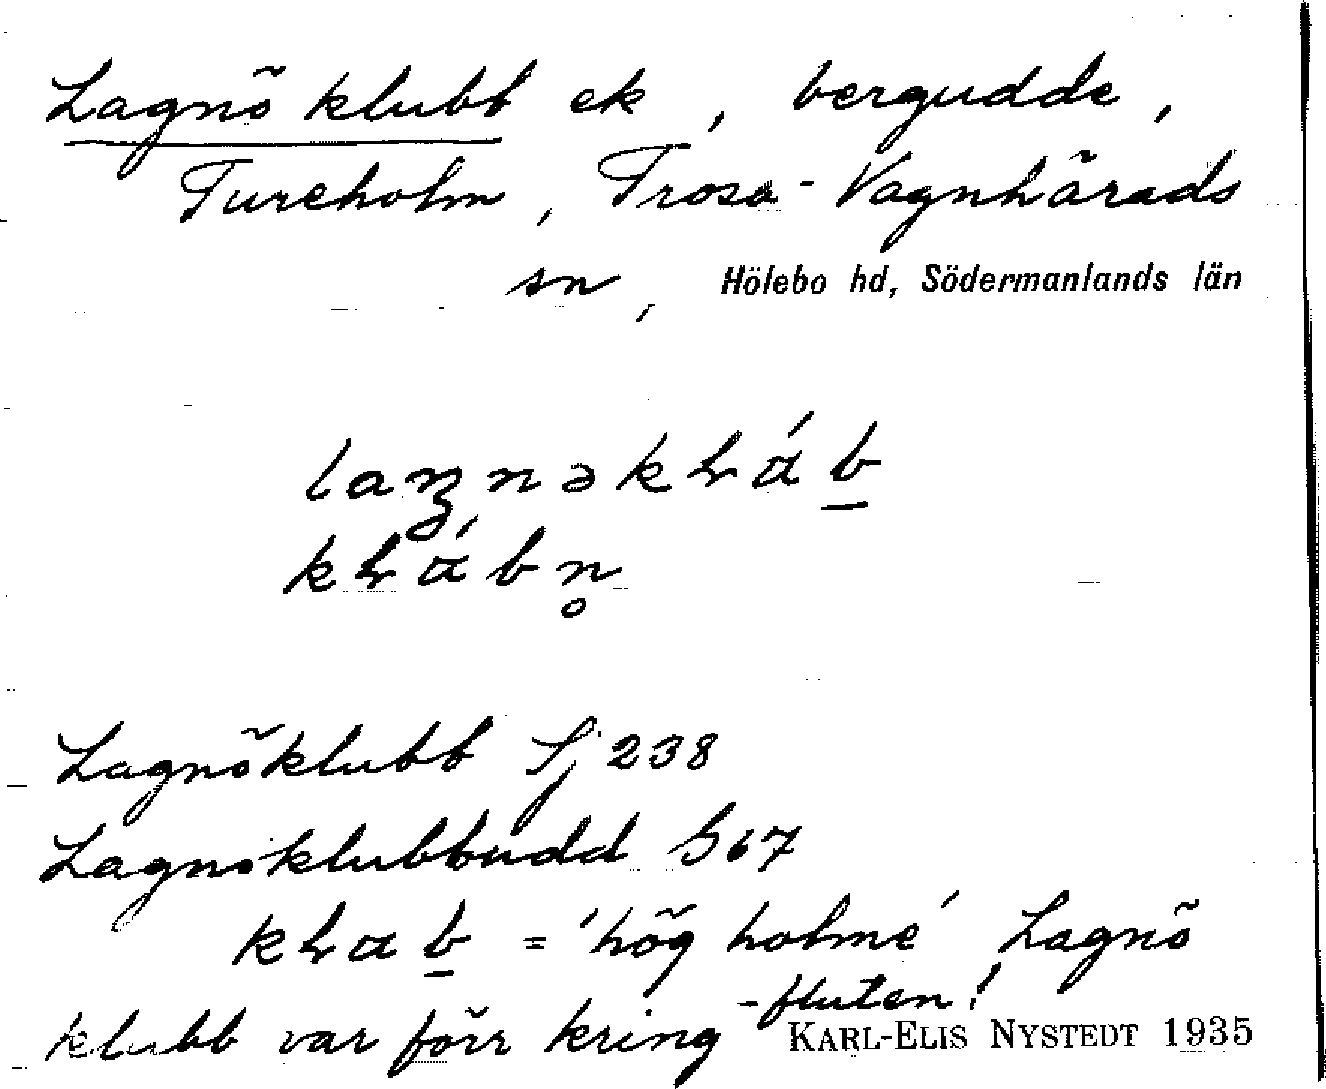 Lagnö klubb ek, bergudde,
Tureholm, Trosa-Vagnhärads
sn, Hölebo hd, Södermanlands län
Lagnöklubb Sj 238
Lagnöklubbudd S67
= 'hög holme' Lagnö
klubb var förr kring-fluten!
KARL-ELIS NYSTEDT 1935